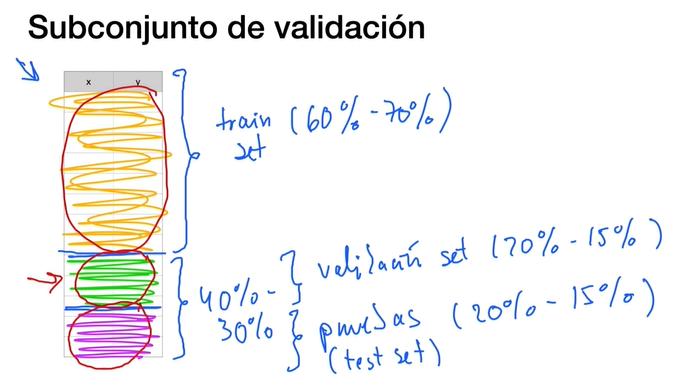 Subconjunto de validación
x y
train (60% - 70%)
set
40% -
30%
validación set (20% - 15%)
pruebas (20% - 15%)
(test set)